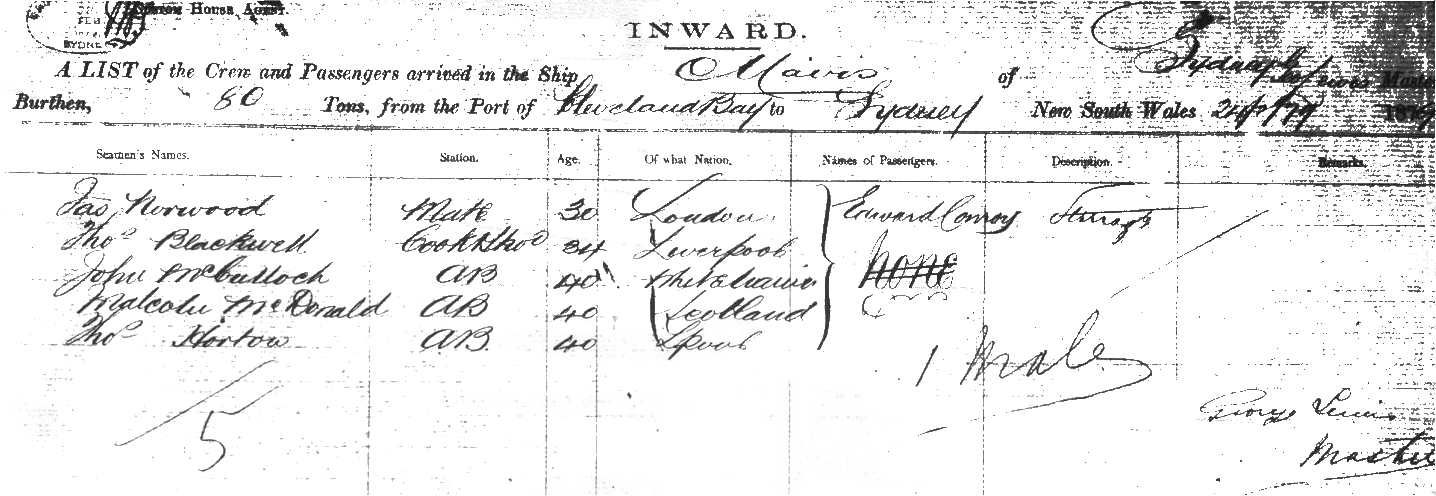 House, Agent.
FEB
SYDNEY
INWARD.
A LIST of the Crew and Passengers arrived in the Ship Mavis of Sydney Master
Burthen, 80 Tons, from the Port of Cleveland Bay to Sydney New South Wales 24/2/79 1879
Seamen's Names. Station. Age. Of what Nation. Names of Passengers. Description. Remarks.
Jas Norwood Mate 30 London Edward Conroy
Thos Blackwell Cook & 34 Liverpool none
John McCulloch AB 40
Malcolm McDonald AB 40 Scotland
Thos Horton AB. 40 Lpool
1 Male
5
George Lewis
Master